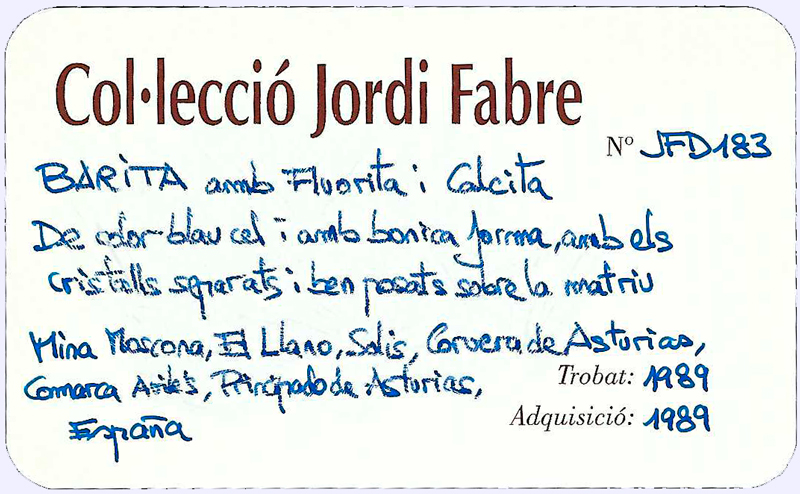 Col·lecció Jordi Fabre
Nº JFD183
BARITA amb Fluorita i Calcita
De color blau cel i amb bonica forma, amb els
cristalls separats i ben posats sobre la matriu
Mina Moscona, El Llano, Solis, Corvera de Asturias,
Comarca Avilés, Principado de Asturias,
España
Trobat: 1989
Adquisició: 1989